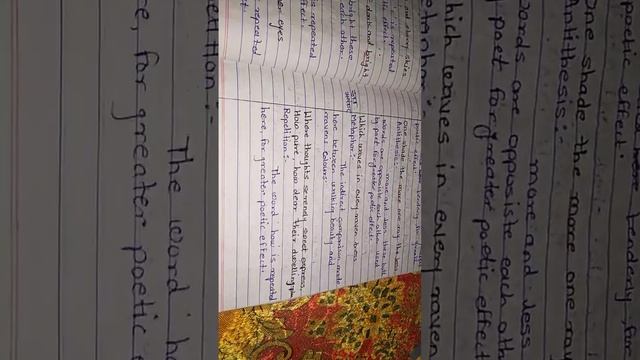 and starry skies
is repeated
tic effect.
dark and bright
bright these
each other.
is repeated
effect.
eyes
repeated
poetic effect.
One shade the more one ray the less
Antithesis:-
more and less these both
words are opposiste each other used
by poet for greater poetic effect
Which waves in every raven tress
Metaphor:-
The indirect comparison made
here between walking beauty and
ravens colours.
Where thoughts serenely sweet express,
How pure, how dear their dwelling pl
Repetition:-
The word 'how' is repeated
here, for greater poetic effect.
poetic effect.
one shade the more one ra
Antithesis:-
more and less
words are opposiste each oth
y poet for greater poetic effec
hich waves in every raven
etaphor:-
etition:-
The word 'ho
re, for greater poetic e